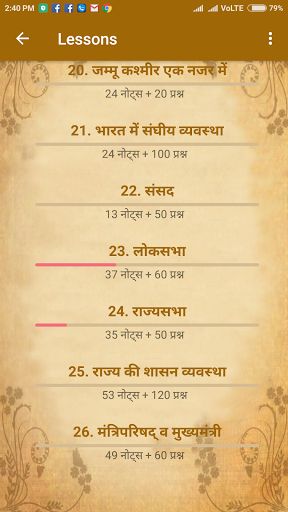 2:40 PM VoLTE 79%
Lessons
20. जम्मू कश्मीर एक नजर में
24 नोट्स + 20 प्रश्न
21. भारत में संघीय व्यवस्था
24 नोट्स + 100 प्रश्न
22. संसद
13 नोट्स + 50 प्रश्न
23. लोकसभा
37 नोट्स + 60 प्रश्न
24. राज्यसभा
35 नोट्स + 50 प्रश्न
25. राज्य की शासन व्यवस्था
53 नोट्स + 120 प्रश्न
26. मंत्रिपरिषद् व मुख्यमंत्री
49 नोट्स + 60 प्रश्न